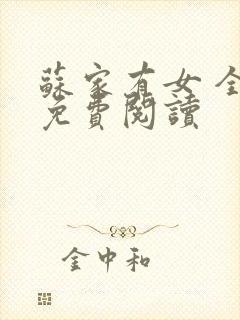 蘇家有女 全
免費閱讀
金中和